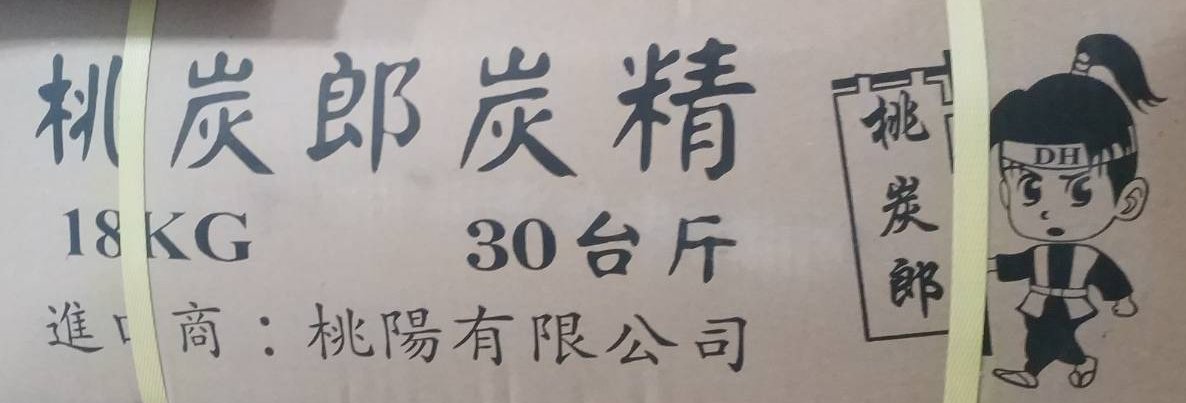 桃炭郎炭精
18KG 30台斤
進口商：桃陽有限公司
桃炭郎
DH